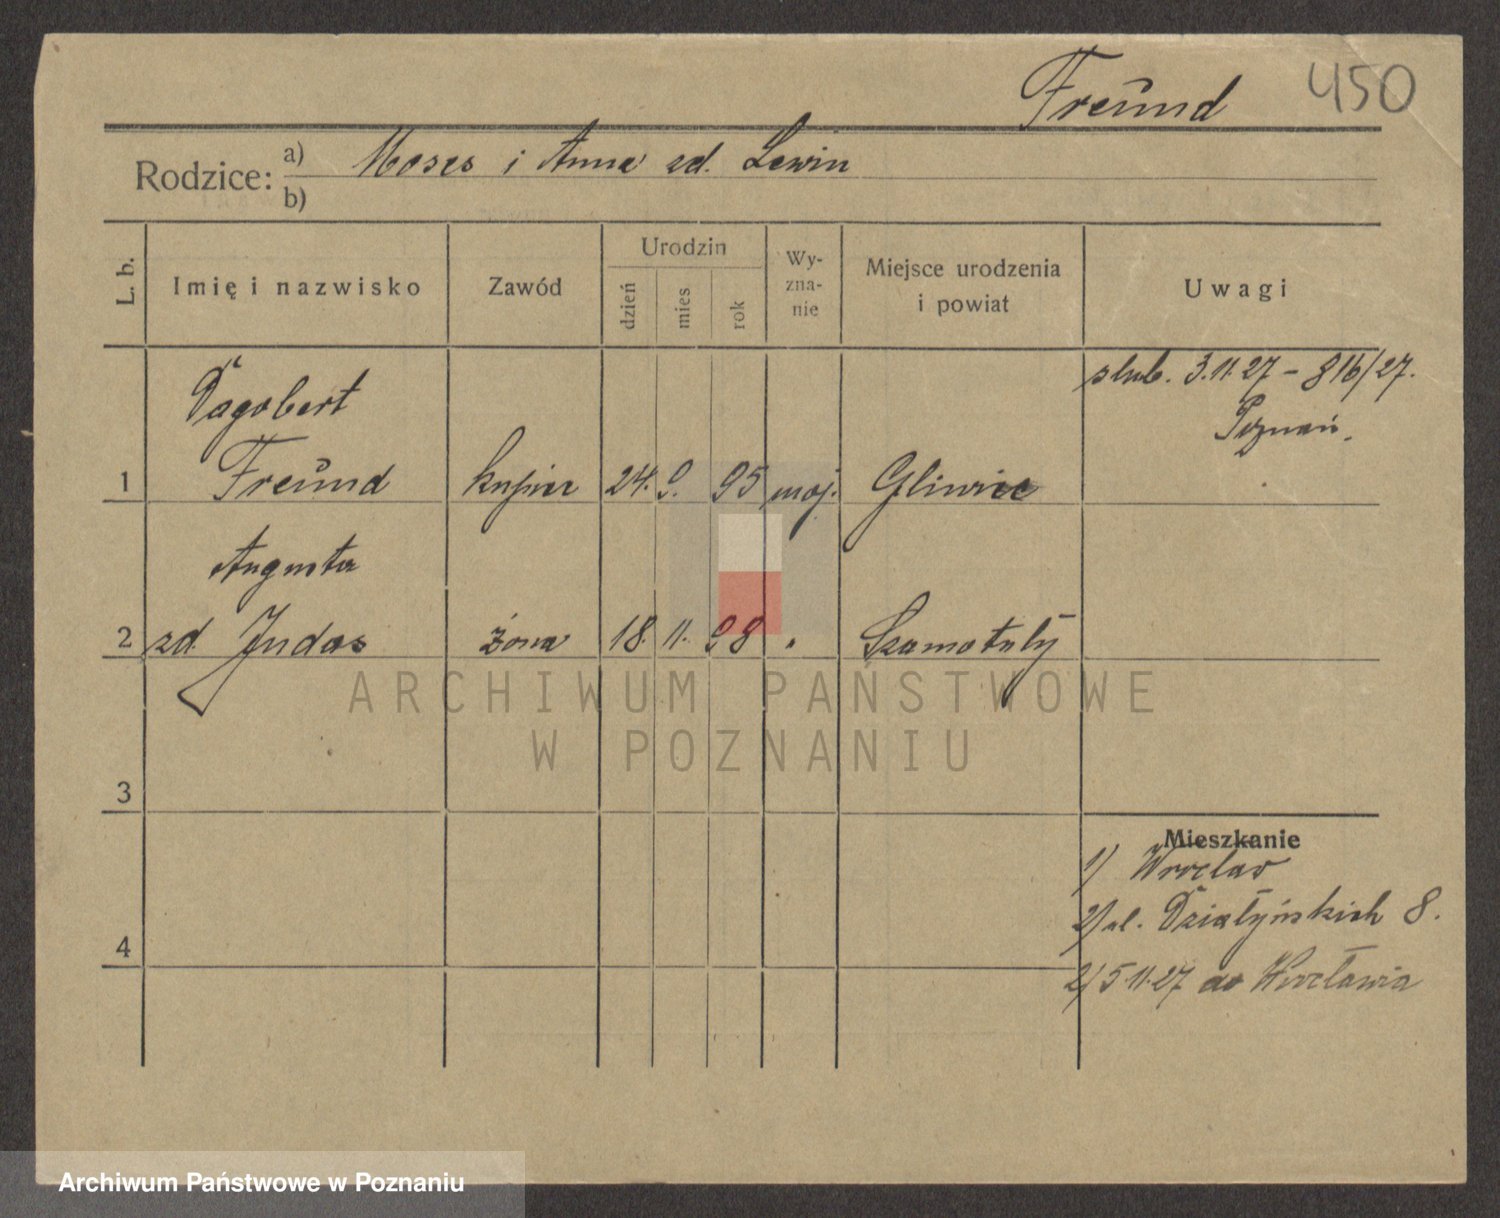 Freund 450
Rodzice: a) Moses i Anna zd. Lewin
b)
L. b.
Imię i nazwisko
Zawód
Urodzin
dzień
mies
rok
Wy-
zna-
nie
Miejsce urodzenia
i powiat
Uwagi
ślub. 3.11.27 – 816/27.
Poznań.
Dagobert
1 Freund kupiec 24. 9. 95 moj. Gliwice
Augusta
2 zd. Judas żona 18. 11. 98 " Szamotuły
3
4
Mieszkanie
1) Wrocław
2) ul. Działyńskich 8.
2) 5.11.27 do Wrocławia
ARCHIWUM PAŃSTWOWE
W POZNANIU
Archiwum Państwowe w Poznaniu